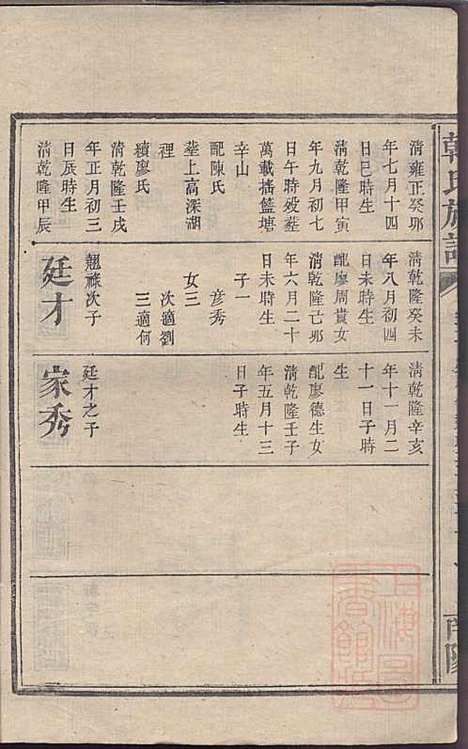 韓氏族譜
南陽
清雍正癸卯
年七月十四
日巳時生
清乾隆甲寅
年九月初七
日午時歿塟
萬載搖籃塘
辛山
配陳氏
塟上高深湖
裡
續廖氏
清乾隆壬戌
年正月初三
日辰時生
清乾隆甲辰
清乾隆癸未
年八月初四
日未時生
配廖周貴女
清乾隆己卯
年六月二十
日未時生
子一
彦秀
女三
次適劉
三適何
翹祿次子
廷才
清乾隆辛亥
年十一月二
十一日子時
生
配廖德生女
清乾隆壬子
年五月十三
日子時生
廷才之子
家秀
上海圖書館藏